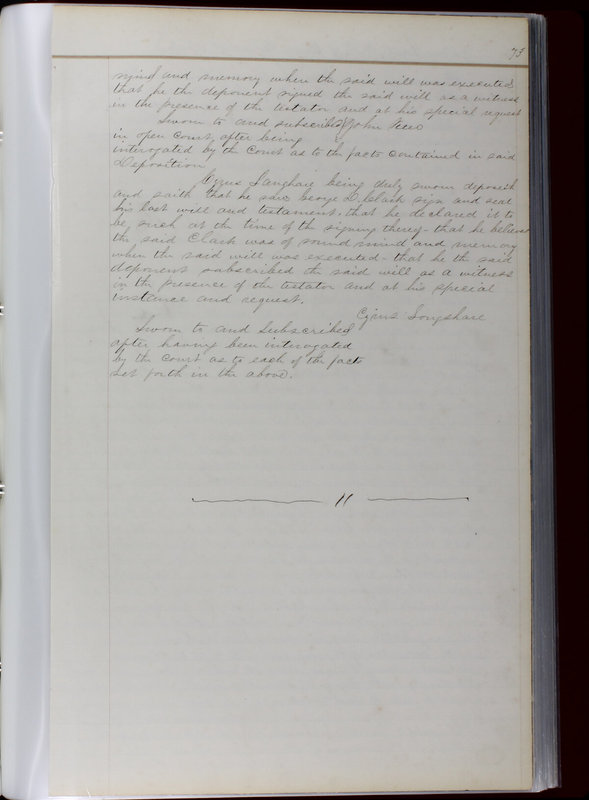 75
mind and memory when the said will was executed
that he the deponent signed the said will as a witness
in the presence of the testator and at his special request
Sworn to and subscribed } John
in open Court after being
interogated by the Court as to the facts contained in said
Deposition
Cyrus Langhare being duly sworn deposeth
and saith that he saw George D. Clark sign and seal
his last will and testament, that he declared it to
be such at the time of the signing thereof - that he believes
the said Clark was of sound mind and memory
when the said will was executed - that he the said
deponent subscribed the said will as a witness
in the presence of the testator and at his special
instance and request.
Cyrus Longshare
Sworn to and Subscribed
after having been interogated
by the Court as to each of the facts
set forth in the above.